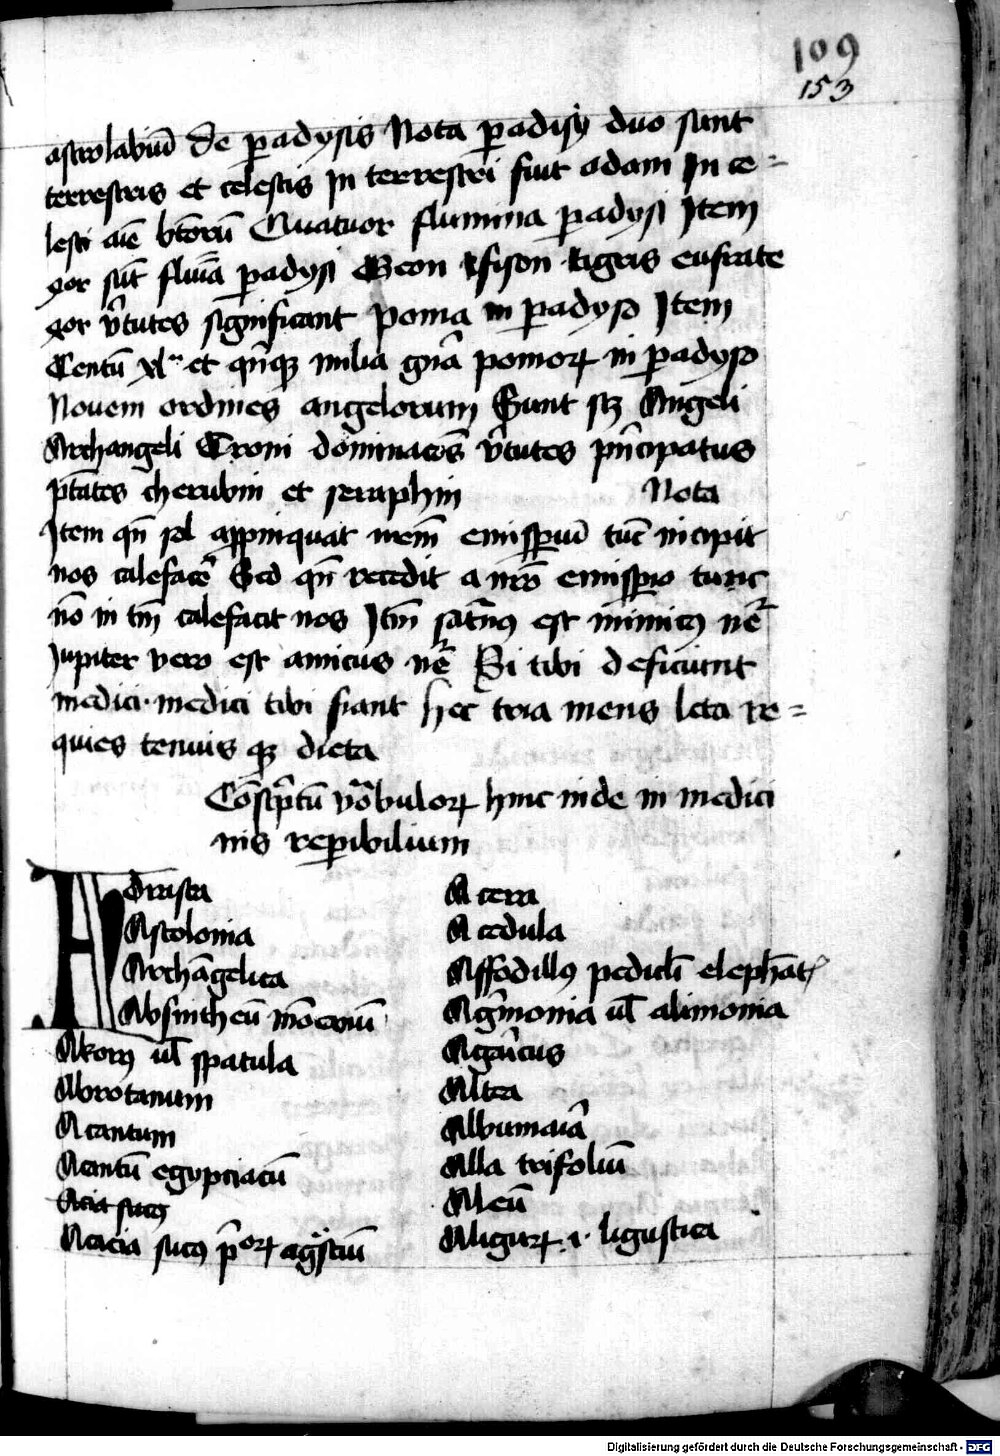 109
153
astrolabiū de padysis Nota padisy duo sunt
terrestris et celestis In terrestri fuit adam In ce=
lesti aīe btōrū Quatuor flumina padysi Item
qor sūt fluīa padysi Geon fison tigris eufrate
qor v̄tutes significant poma in padyso Item
Centū xl et qn̄qꝫ milia gn̄a pomoꝝ in padyso
Nouem ordines angelorum Sunt scꝫ Angeli
Archangeli Troni dominacōs v̄tutes pn̄cipatus
ptātes cherubin et seraphin Nota
Item qn̄ sol appinquat emisperiū tūc incipit
nos calefacē Sed qn̄ recedit a nr̄o emisperio tunc
nō in tm̄ calefacit nos Itm̄ satn̄us est inimicꝰ nē
Jupiter vero est amicus nē Si tibi deficiunt
medici medici tibi fiant hec tria mens leta re=
quies tenuis qꝫ dieta
Cōscptū vōbuloꝝ hinc inde in medici
nis repibilium
Adrasta
Astolonia
Archāgelica
Absintheū
Akorꝰ ul spatula
Abrotanum
Acantum
Acantū egypciacū
Acia sucꝰ
Acacia sucꝰ pꝛoꝝ agᵉstiū
Acera
Acedula
Affodillꝰ peduli elephāt
Agm̄onia ul alimonia
Agar̄icus
Altea
Albumaiā
Alla trifoliū
Aleū
Aliguꝝ .i. ligustica
Digitalisierung gefördert durch die Deutsche Forschungsgemeinschaft - DFG